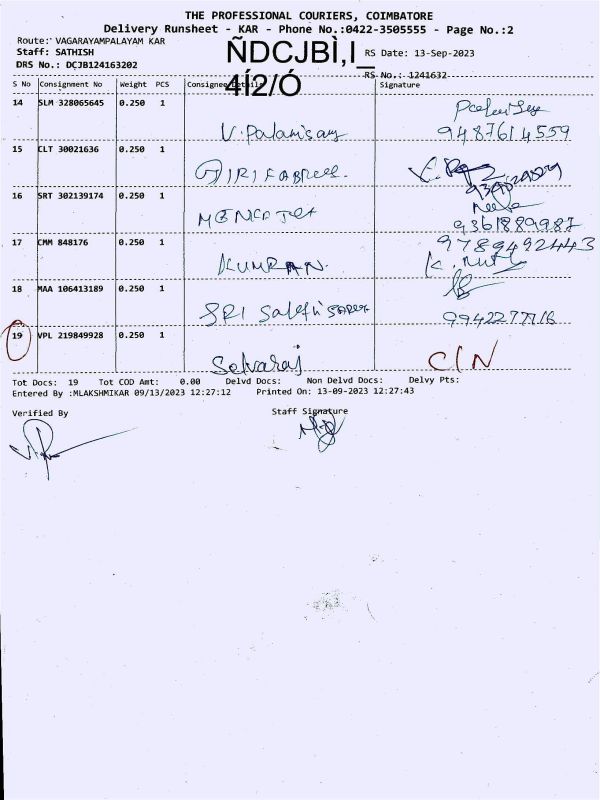 THE PROFESSIONAL COURIERS, COIMBATORE
Delivery Runsheet - KAR - Phone No.:0422-3505555 - Page No.:2
Route: VAGARAYAMPALAYAM KAR
Staff: SATHISH
ÑDCJBÌ,I_
RS Date: 13-Sep-2023
DRS No.: DCJB124163202
4Í2/Ó
RS No.: 1241632
S No Consignment No Weight PCS Consignee Details Signature
14 SLM 328065645 0.250 1
V. Palanisamy 9487614559
15 CLT 30021636 0.250 1
GIRI FABRICS.
16 SRT 302139174 0.250 1
9361889987
17 CMM 848176 0.250 1 9789492443
KUMRAN. K.
18 MAA 106413189 0.250 1
SRI Sakthi
19 VPL 219849928 0.250 1
Selvaraj C/N
Tot Docs: 19 Tot COD Amt: 0.00 Delvd Docs: Non Delvd Docs: Delvy Pts:
Entered By :MLAKSHMIKAR 09/13/2023 12:27:12 Printed On: 13-09-2023 12:27:43
Verified By Staff Signature